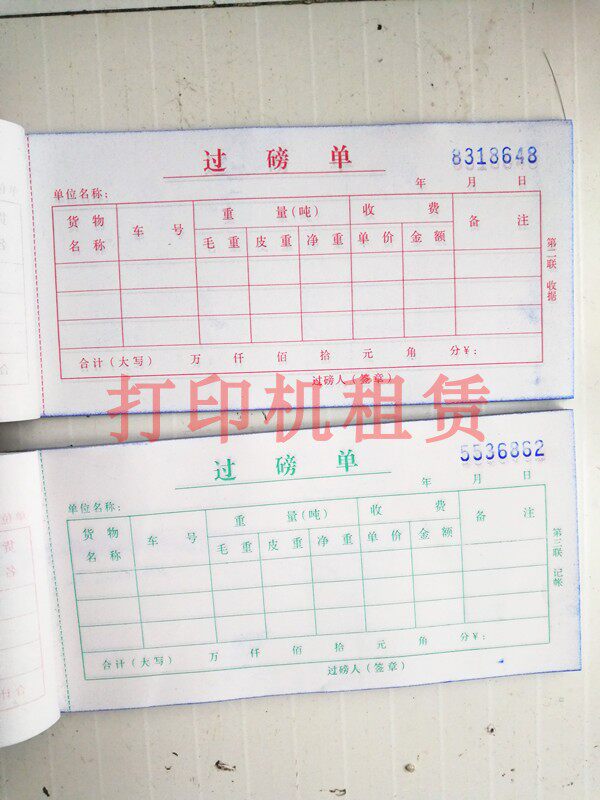 过 磅 单
8318648
单位名称： 年 月 日
货物名称 车号 重量(吨) 收费 备注
毛重 皮重 净重 单价 金额
合计(大写) 万 仟 佰 拾 元 角 分¥：
过磅人(签章)
第二联 收据
打印机租赁
过 磅 单
5536862
单位名称： 年 月 日
货物名称 车号 重量(吨) 收费 备注
毛重 皮重 净重 单价 金额
合计(大写) 万 仟 佰 拾 元 角 分¥：
过磅人(签章)
第三联 记帐